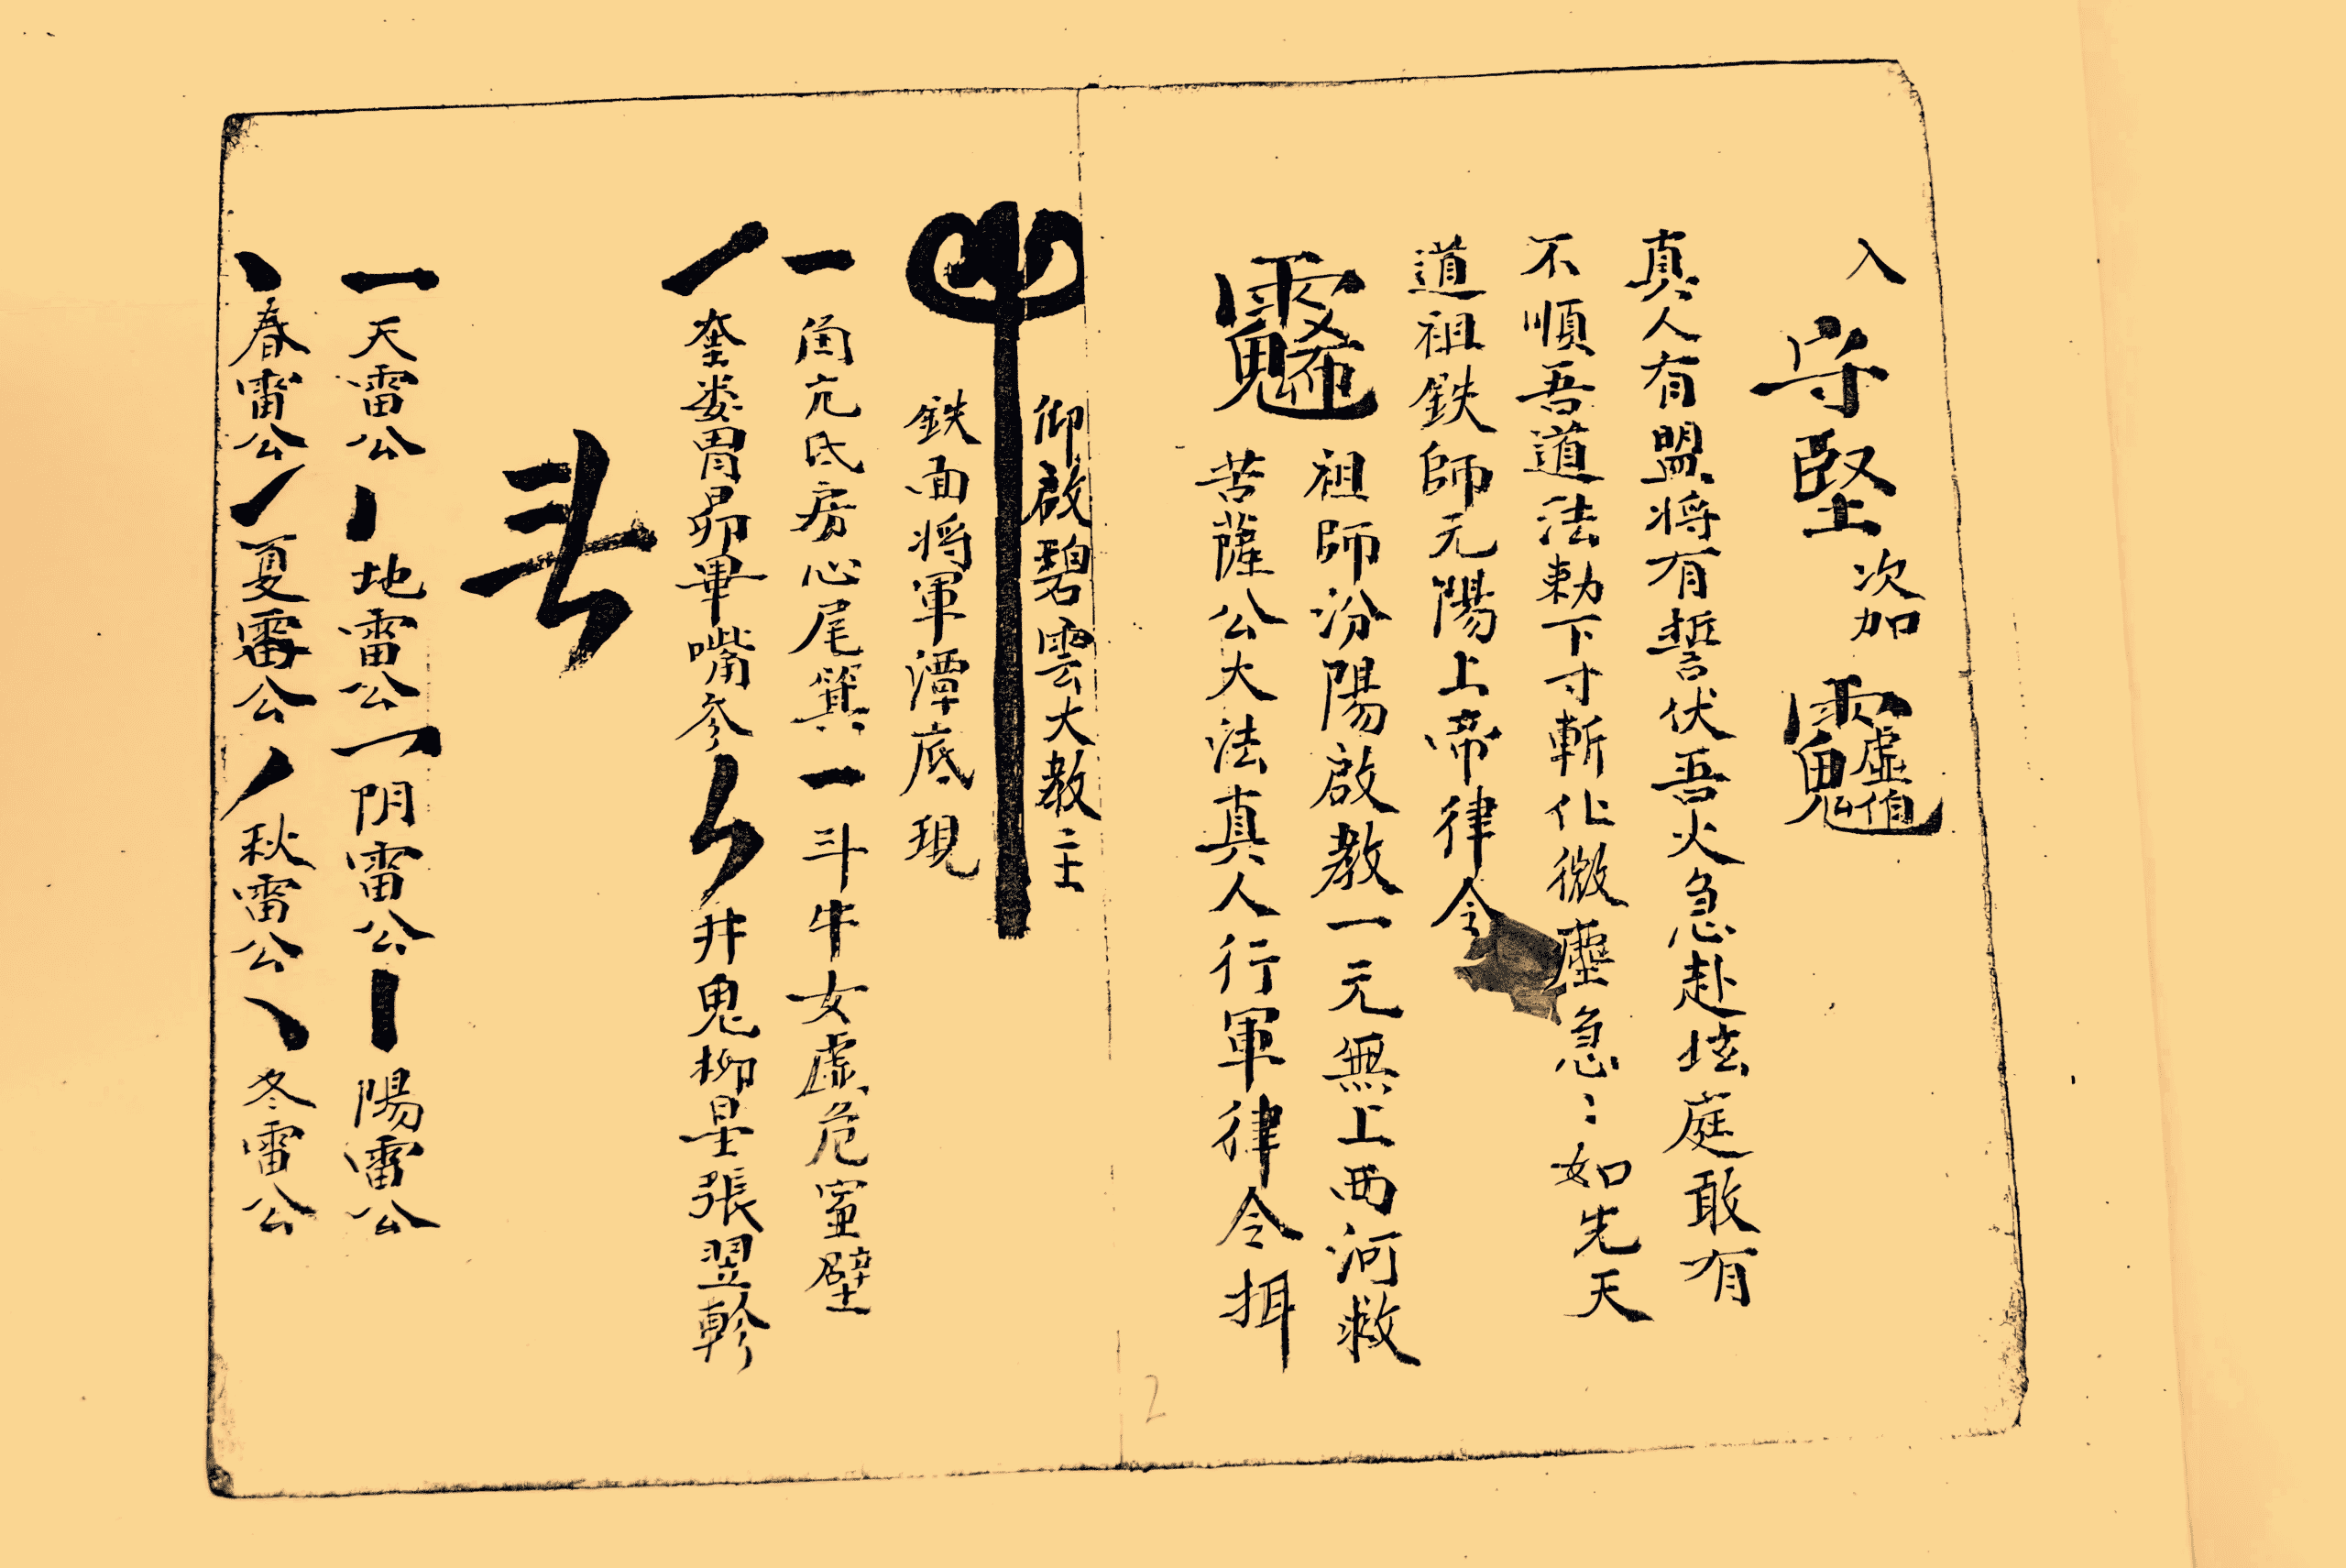 入 守堅 次加
真人有盟将有誓伏吾火急赴坛庭敢有
不順吾道法勅下寸斬化微塵急〻如先天
道祖鉄師元陽上帝律令
祖師汾陽啟教一元無上西河救
苦薩公大法真人行軍律令
仰啟碧雲大教主
鉄面将軍潭底現
一角亢氐房心尾箕一斗牛女虛危室壁
奎娄胃昴畢嘴參 井鬼柳星張翌軫
一天雷公 地雷公 阴雷公 陽雷公
春雷公 夏雷公 秋雷公 冬雷公
2